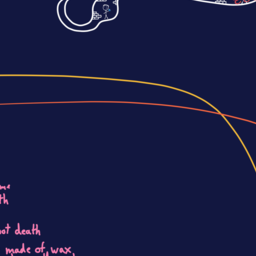 th
not death
made of wax,